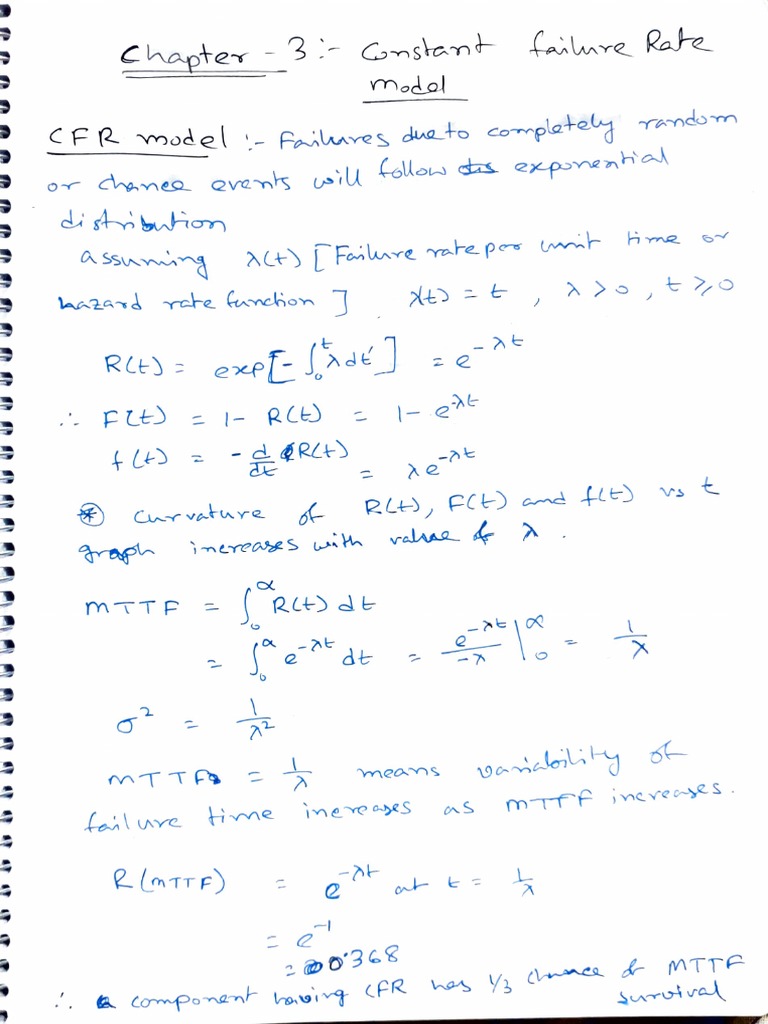 Chapter - 3 :- Constant failure Rate
model
CFR model :- Failures due to completely random
or chance events will follow exponential
distribution
assuming λ(t) [Failure rate per unit time or
hazard rate function] λ(t) = t , λ > 0 , t ≥ 0
R(t) = exp[- ∫₀ᵗ λdt'] = e^-λt
∴ F(t) = 1 - R(t) = 1 - e^-λt
f(t) = - d/dt R(t) = λe^-λt
⊛ curvature of R(t), F(t) and f(t) vs t
graph increases with value of λ .
MTTF = ∫₀^∝ R(t) dt
= ∫₀^∝ e^-λt dt = e^-λt/-λ |₀^∝ = 1/λ
σ² = 1/λ²
MTTF = 1/λ means variability of
failure time increases as MTFF increases.
R(MTTF) = e^-λt at t = 1/λ
= e^-1
= 0.368
∴ a component having CFR has 1/3 chance of MTTF
survival